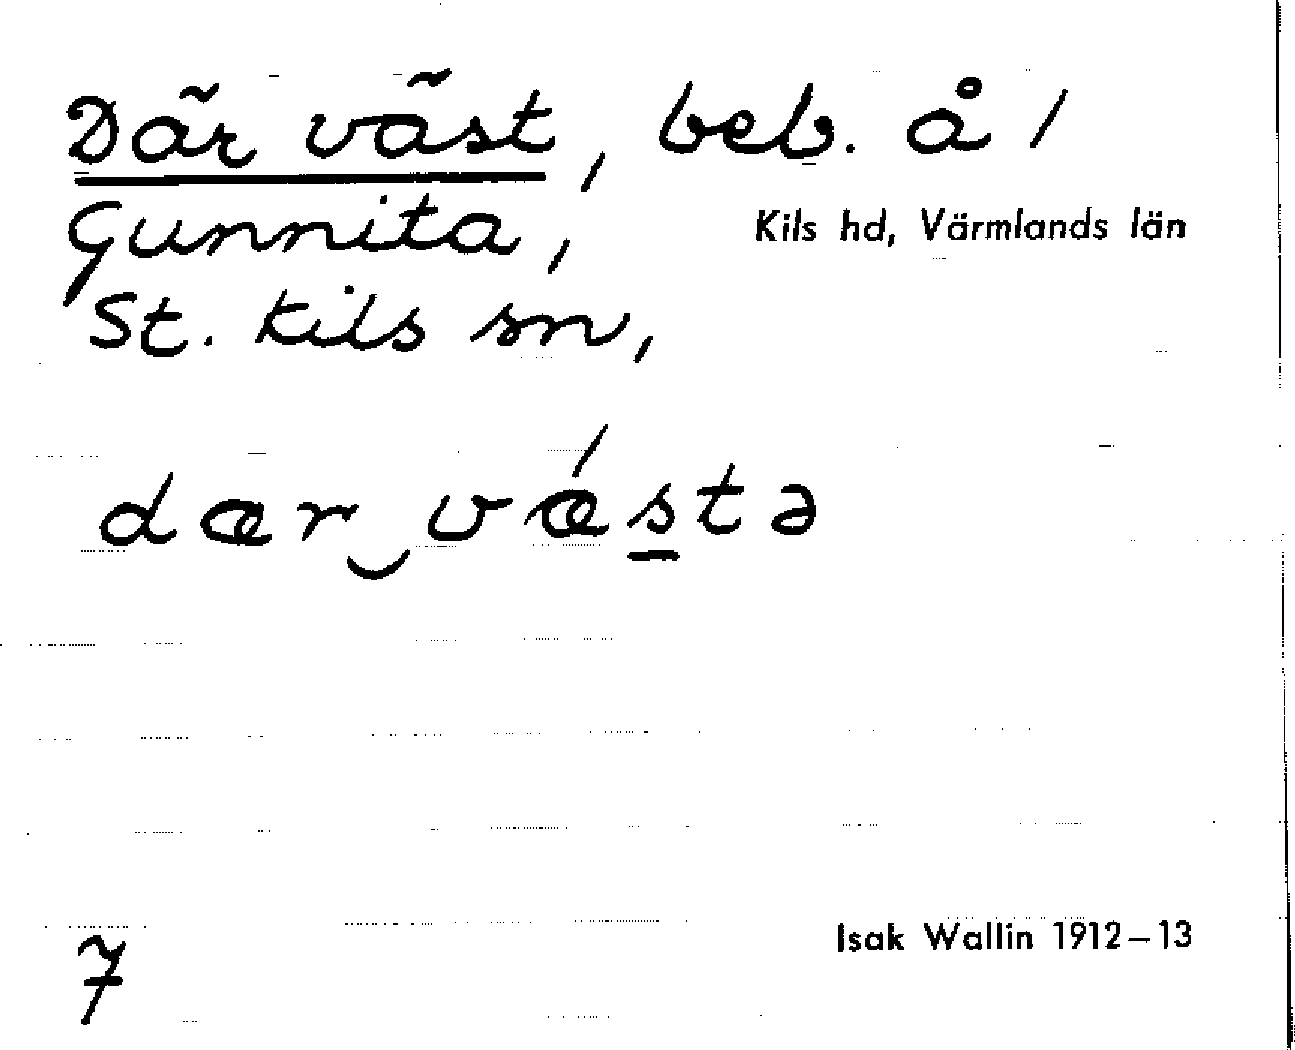 Där väst, beb. å 1
Gunnita,
Kils hd, Värmlands län
St. Kils sn,
dær‿vǽs̱tə
7
Isak Wallin 1912–13